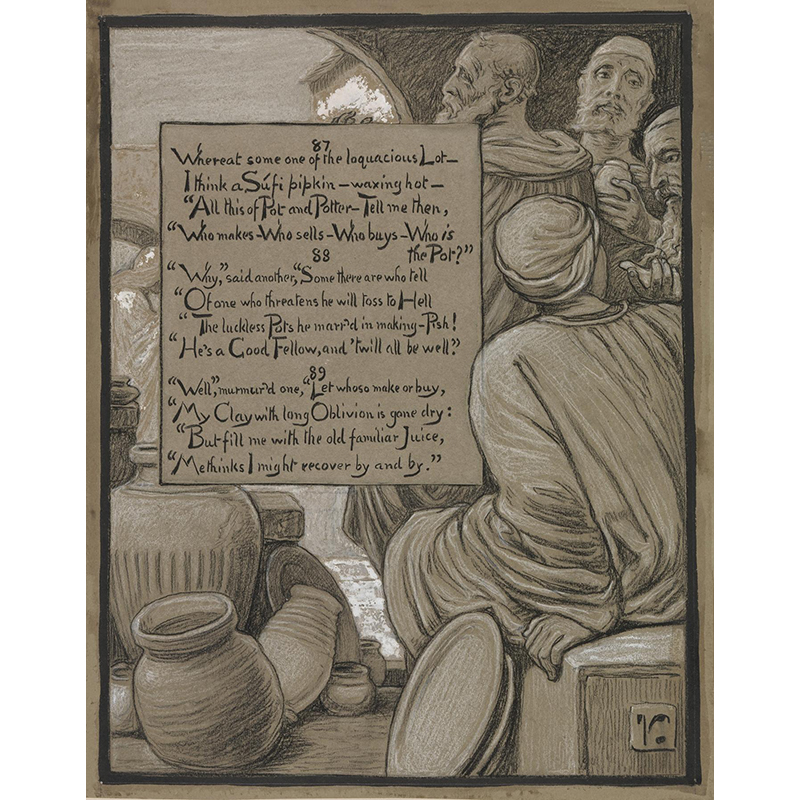 87
Whereat some one of the loquacious Lot—
I think a Súfi pipkin—waxing hot—
"All this of Pot and Potter—Tell me then,
"Who makes—Who sells—Who buys—Who is
the Pot?"
88
"Why," said another, "Some there are who tell
"Of one who threatens he will toss to Hell
"The luckless Pots he marr'd in making—Pish!
"He's a Good Fellow, and 'twill all be well."
89
"Well," murmur'd one, "Let whoso make or buy,
"My Clay with long Oblivion is gone dry:
"But fill me with the old familiar Juice,
"Methinks I might recover by and by."
V.